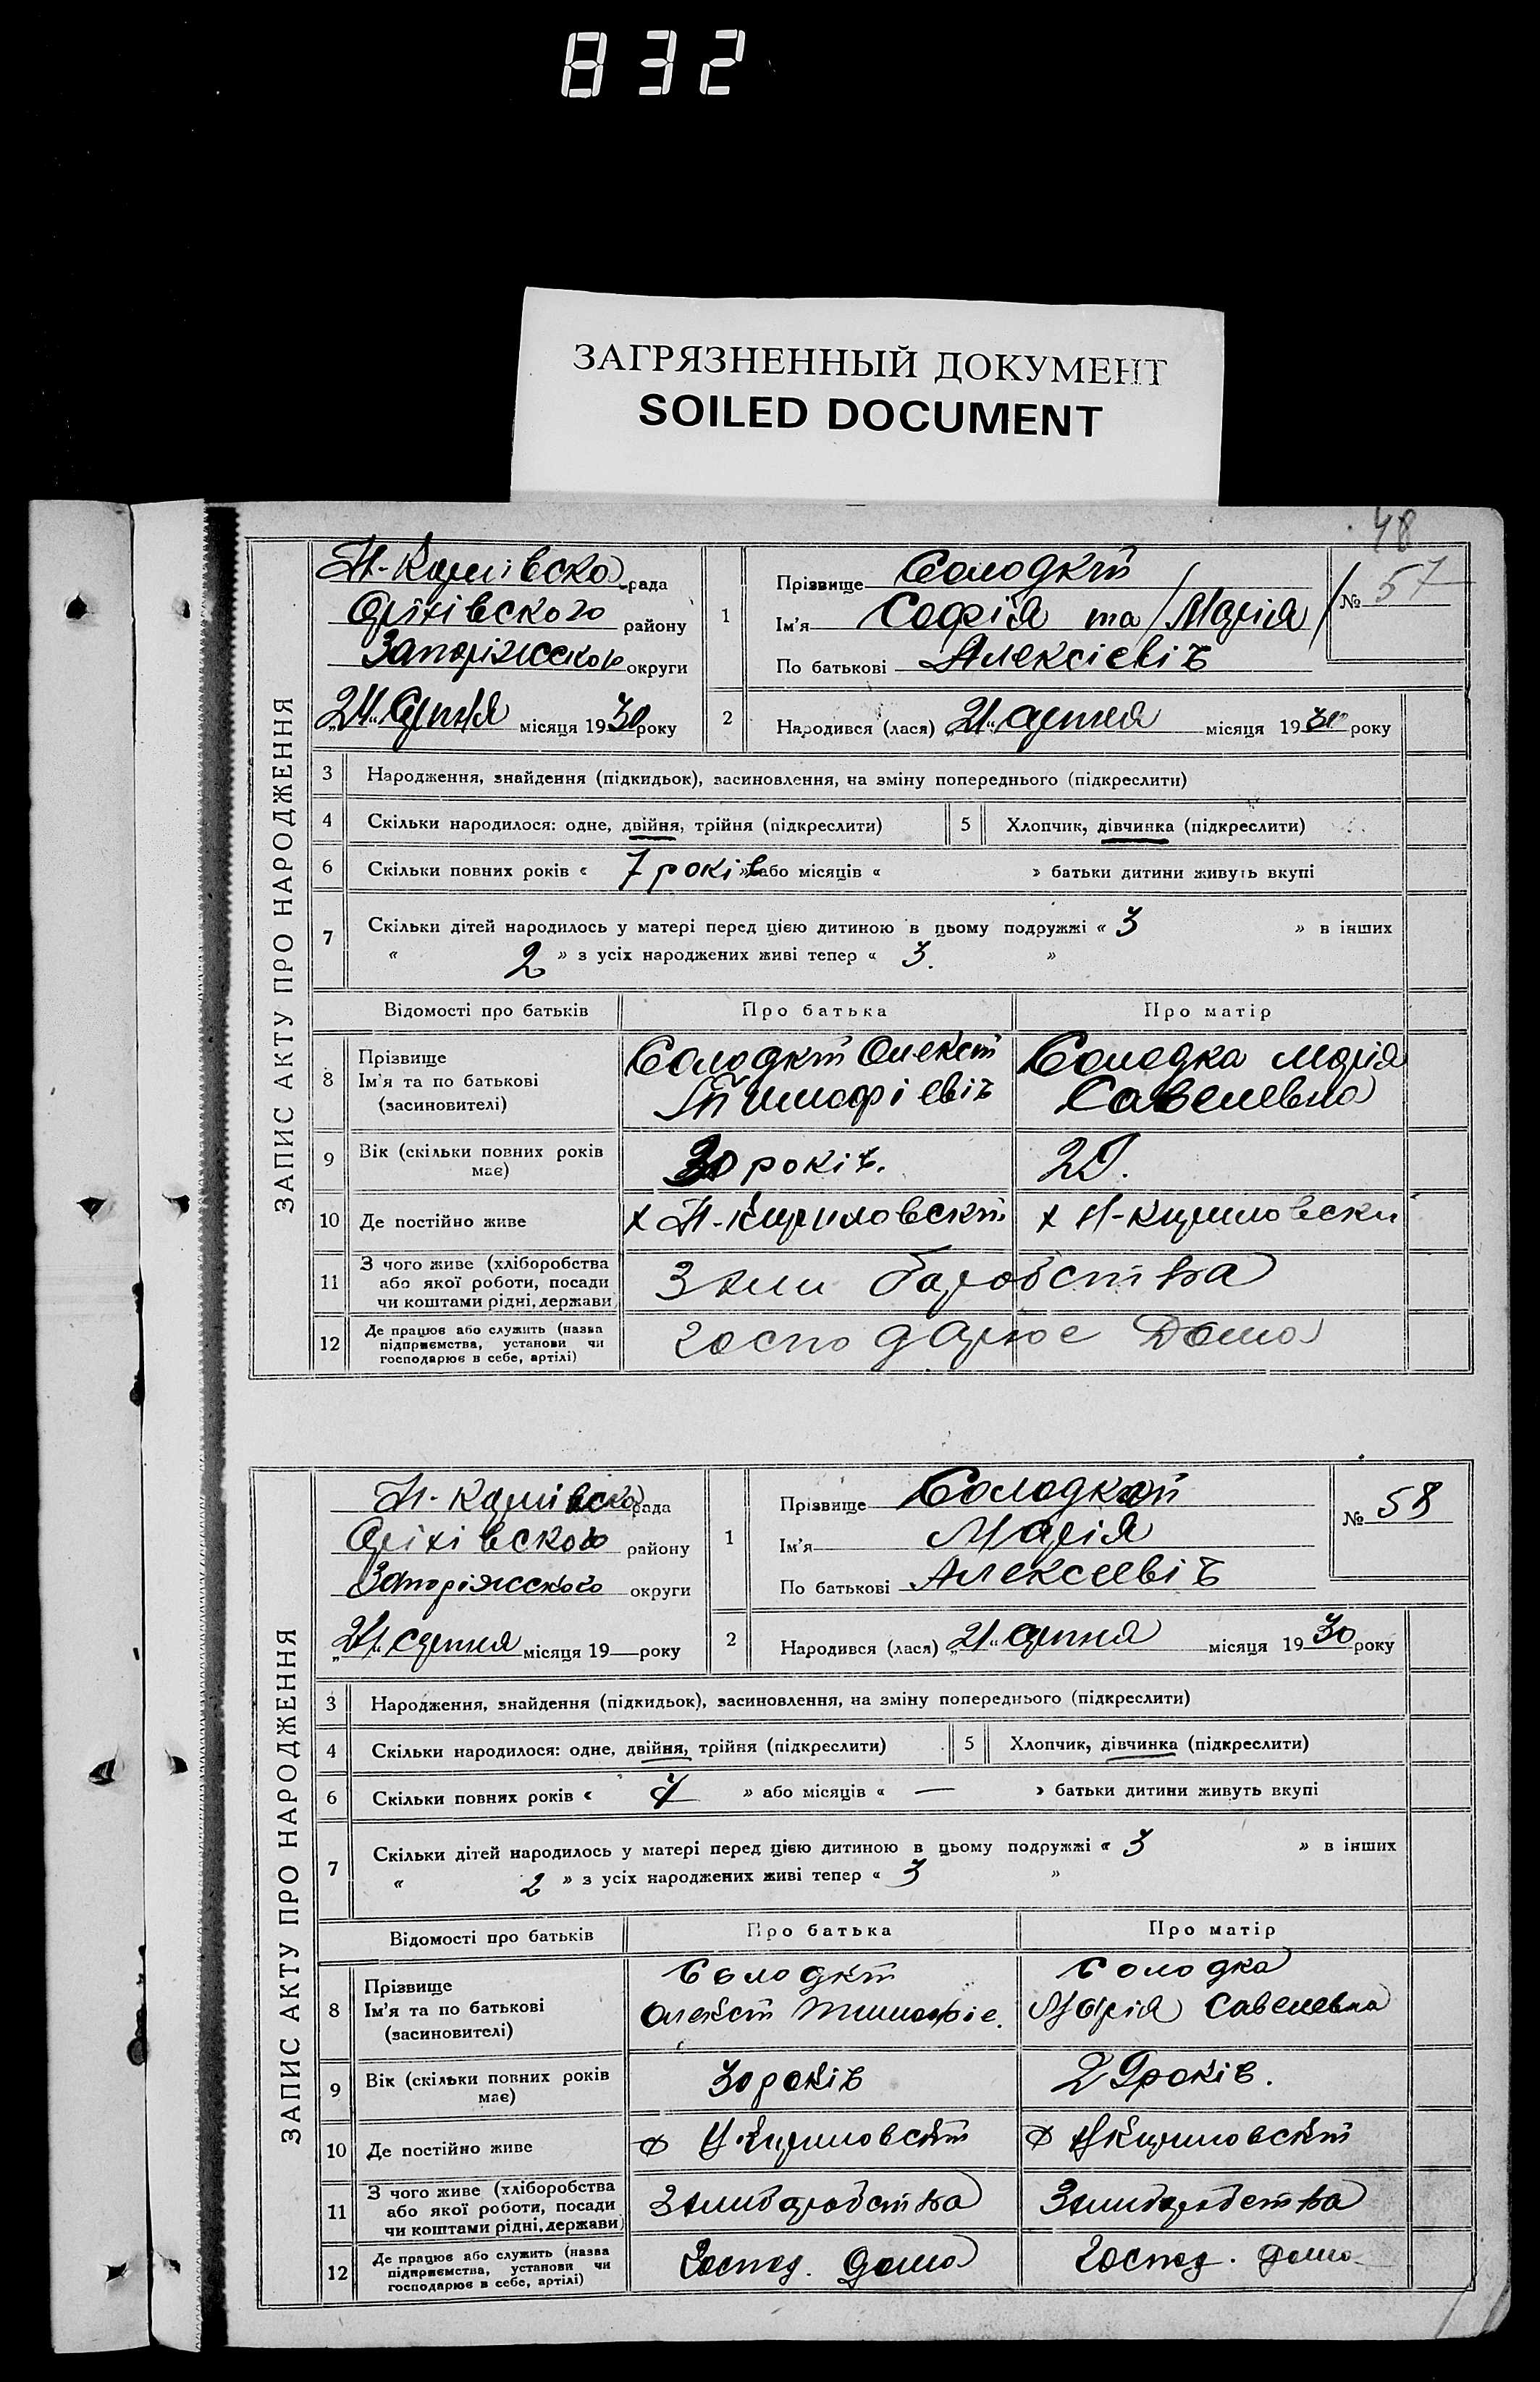 832
ЗАГРЯЗНЕННЫЙ ДОКУМЕНТ
SOILED DOCUMENT
48
ЗАПИС АКТУ ПРО НАРОДЖЕННЯ
рада
Оріхівского району
округи
21 Серпня місяця 1930 року
1 Прізвище Солодкій
Ім'я Софія та /Марія/
По батькові Алексієвіч
№ 57
2 Народився (лася) „21“ серпня місяця 1930 року
3 Народження, знайдення (підкидьок), засиновлення, на зміну попереднього (підкреслити)
4 Скільки народилося: одне, двійня, трійня (підкреслити) 5 Хлопчик, дівчинка (підкреслити)
6 Скільки повних років « 7 років » або місяців « » батьки дитини живуть вкупі
7 Скільки дітей народилось у матері перед цією дитиною в цьому подружжі « 3 » в інших
« 2 » з усіх народжених живі тепер « 3. »
Відомості про батьків Про батька Про матір
8 Прізвище
Ім'я та по батькові
(засиновителі)
Солодкій Олексій
Тимофієвіч
Солодка Марія
Савелевна
9 Вік (скільки повних років має) 30 років. 29.
10 Де постійно живе х Н-Кириловскій х Н-Кириловски
11 З чого живе (хліборобства
або якої роботи, посади
чи коштами рідні, держави)
12 Де працює або служить (назва
підприємства, установи чи
господарює в себе, артілі)
господарює Дома
ЗАПИС АКТУ ПРО НАРОДЖЕННЯ
рада
Оріхівского району
округи
21 серпня місяця 19 року
1 Прізвище Солодкой
Ім'я Марія
По батькові Алексеевіч
№ 58
2 Народився (лася) „21“ серпня місяця 1930 року
3 Народження, знайдення (підкидьок), засиновлення, на зміну попереднього (підкреслити)
4 Скільки народилося: одне, двійня, трійня (підкреслити) 5 Хлопчик, дівчинка (підкреслити)
6 Скільки повних років « 7 » або місяців « — » батьки дитини живуть вкупі
7 Скільки дітей народилось у матері перед цією дитиною в цьому подружжі « 3 » в інших
« 2 » з усіх народжених живі тепер « 3 »
Відомості про батьків Про батька Про матір
8 Прізвище
Ім'я та по батькові
(засиновителі)
Солодкій
Олексій Тимофіе.
Солодка
Марія Савелевна
9 Вік (скільки повних років має) 30 років 29 років.
10 Де постійно живе х Н Кириловскій х Н Кириловскій
11 З чого живе (хліборобства
або якої роботи, посади
чи коштами рідні, держави)
12 Де працює або служить (назва
підприємства, установи чи
господарює в себе, артілі)
Господ. дома Господ. дома